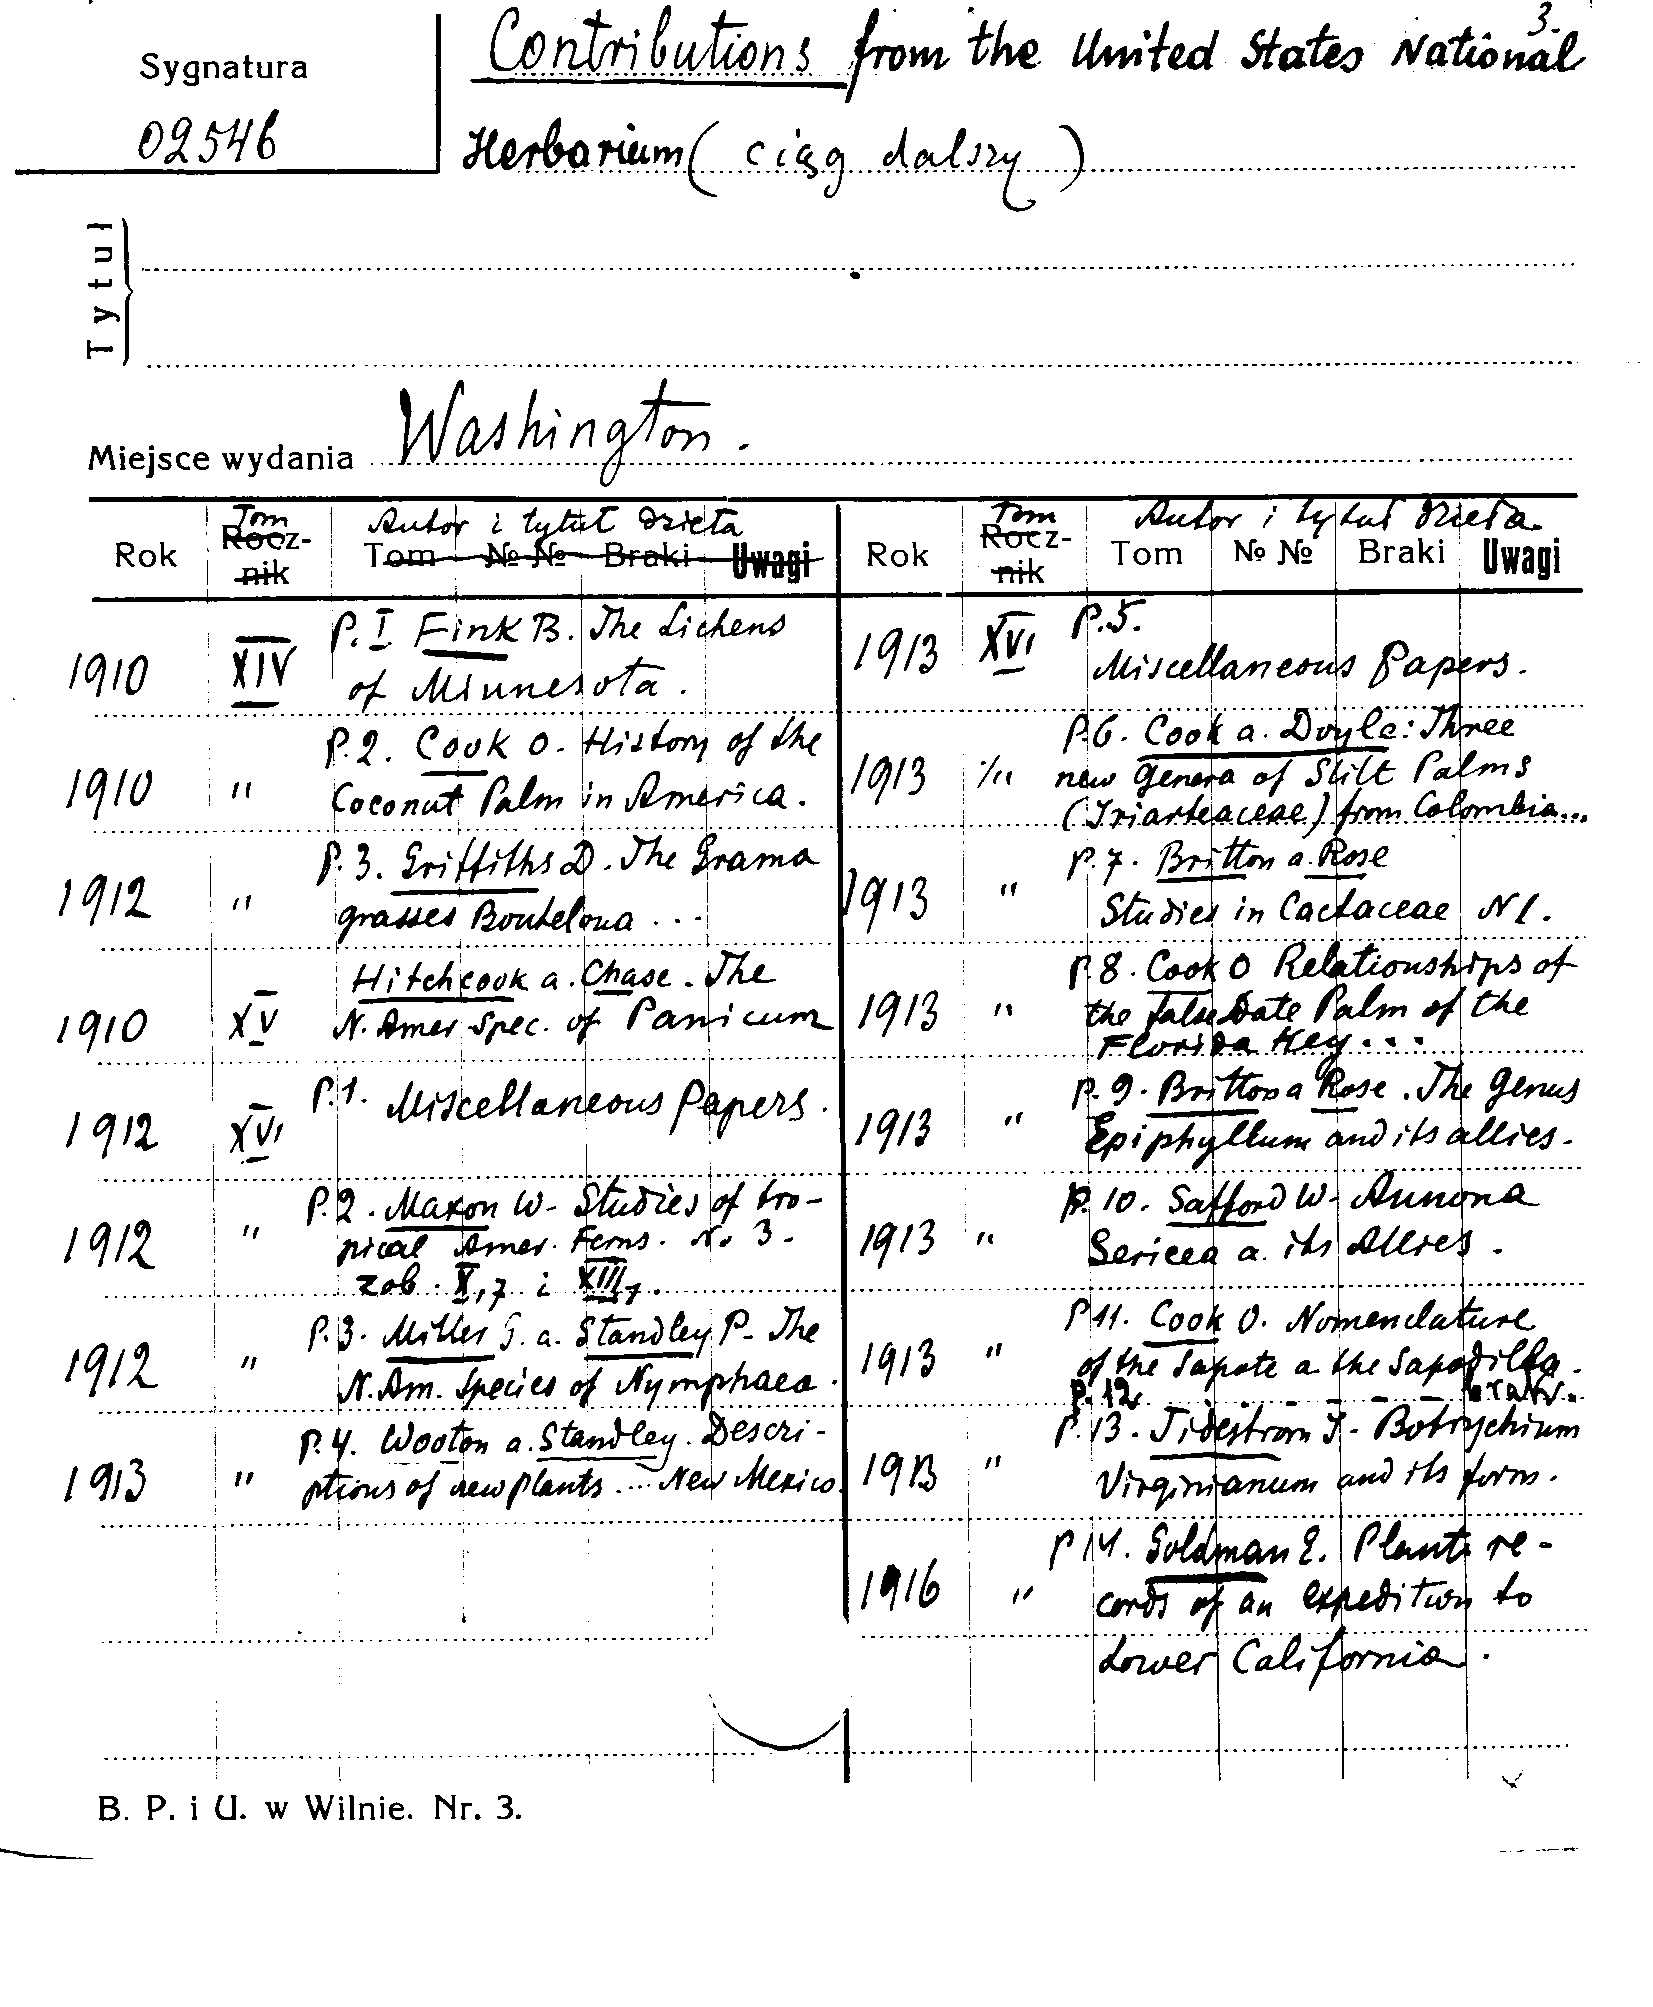 3.
Sygnatura
02546
Contributions from the United States National
Herbarium ( ciąg dalszy )
Tytuł
Miejsce wydania Washington.
Rok Tom Rocznik Autor i tytuł dzieła Tom №№ Braki Uwagi
1910 XIV P. I Fink B. The Lichens
of Minnesota.
1910 " P. 2. Cook O. History of the
Coconut Palm in America.
1912 " P. 3. Griffiths D. The Grama
grasses Bouteloua ...
1910 XV Hitchcook a. Chase. The
N. Amer. Spec. of Panicum
1912 XVI P. 1. Miscellaneous Papers.
1912 " P. 2. Maxon W. Studies of tro-
pical Amer. Ferns. N. 3.
zob. X,7 i XIII,7.
1912 " P. 3. Miller G. a. Standley P. The
N. Am. Species of Nymphaea.
1913 " P. 4. Wooton a. Standley. Descri-
ptions of new plants .... New Mexico.
Rok Tom Rocznik Autor i tytuł dzieła. Tom №№ Braki Uwagi
1913 XVI P. 5.
Miscellaneous Papers.
1913 " P. 6. Cook a. Doyle: Three
new genera of Stilt Palms
(Iriarteaceae) from Colombia...
1913 " P. 7. Britton a. Rose
Studies in Cactaceae N 1.
1913 " P. 8. Cook O Relationships of
the false Date Palm of the
Florida Key...
1913 " P. 9. Britton a Rose. The Genus
Epiphyllum and its allies.
1913 " P. 10. Safford W. Annona
Sericea a. its Allies.
1913 " P 11. Cook O. Nomenclature
of the Sapote a the Sapodilla.
P. 12
1913 " P. 13. Tidestrom I. Botrychium
Virginianum and its form.
1916 " P 14. Goldman E. Plant re-
cords of an expedition to
Lower California.
B. P. i U. w Wilnie. Nr. 3.